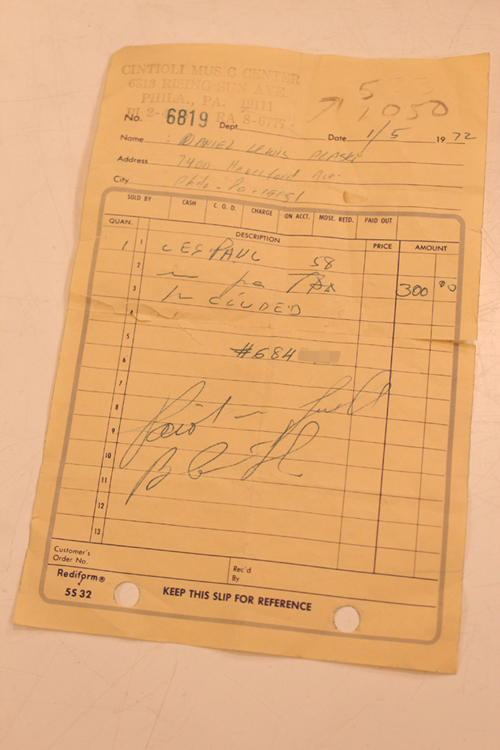 CINTIOLI MUSIC CENTER
6513 RISING SUN AVE.
PHILA., PA. 19111
5
1050
No. 6819 Dept.
Date 1/5 1972
Name DANIEL LEWIS
Address 7400 Haverford Ave.
City Phila. Pa. 19151
SOLD BY CASH C. O. D. CHARGE ON ACCT. MDSE. RETD. PAID OUT
QUAN. DESCRIPTION PRICE AMOUNT
1 1 LES PAUL 58
2 in pa TAX
3 INCLUDED 300 00
4
5 #684
6
7
8 Paid in full
9
10
11
12
13
Customer's
Order No.
Rec'd
By
Rediform®
5S 32
KEEP THIS SLIP FOR REFERENCE